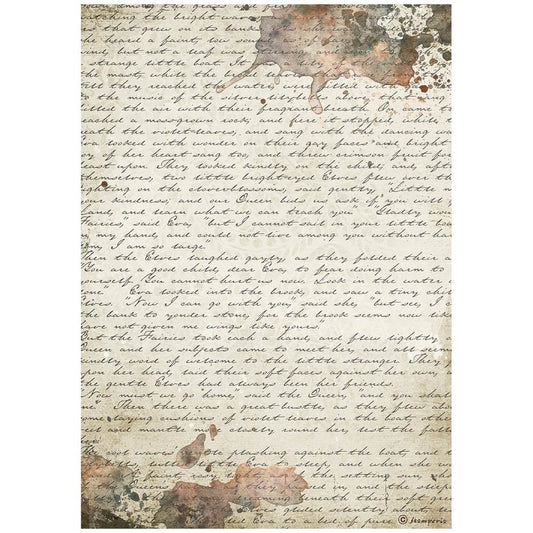 atching the bright wave
s that grew on its bank she
he heard a faint, low soun
wind, but not a leaf was
strange little boat. It
the mast, while the
ill they reached the water, were
to the music of the silver above that hung
illed the air with their fragrant breath. On came t
eached a moss-grown rock; and here it stopped, while, t
eath the violet-leaves, and sang with the dancing wa
Eva looked with wonder on their gay faces and bright
oy of her heart sang too, and threw crimson fruit for
east upon. They looked kindly on the child, and, afte
themselves, two little bright-eyed Elves flew over th
ighting on the clover-blossoms, said gently, "Little m
our kindness; and our Queen bids us ask if you will g
Land, and learn what we can teach you." "Gladly wou
Fairies," said Eva, "but I cannot sail in your little boa
n my hand, and could not live among you without har
om, I am so large."
Then the Elves laughed gayly, as they folded their
You are a good child, dear Eva, to fear doing harm to
ourself. You cannot hurt us now. Look in the water a
one." Eva looked into the brook, and saw a tiny chil
Elves. "Now I can go with you," said she, "but see, I c
the bank to yonder stone, for the brook seems now like
have not given me wings like yours."
But the Fairies took each a hand, and flew lightly o
Queen and her subjects came to meet her, and all seem
kindly word of welcome to the little stranger. They
pon her head, laid their soft faces against her own,
the gentle Elves had always been her friends.
Now must we go home," said the Queen, "and you shal
e." Then there was a great bustle, as they flew abo
some laying cushions of violet leaves in the boat, othe
eil and mantle more closely round her, lest the fall
er.
The cool waves' plashing against the boat, and t
Eva to sleep, and when she wo
faint, rosy the setting sun, sh
Queen in the boat, and the sleep
seeming beneath their soft gree
glided silently about,
Eva to a bed of pure
© stamperia